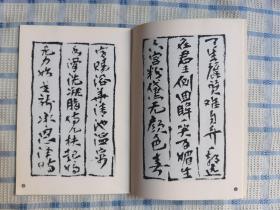 天生麗質難自弃一朝選
在君王側回眸一笑百媚生
六宮粉黛無顏色春
寒賜浴華清池溫泉
水滑洗凝脂侍兒扶起嬌
無力始是新承恩澤時